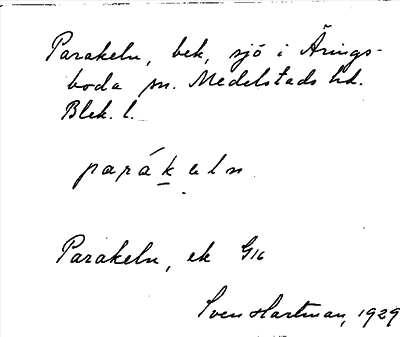 Parakeln, bek, sjö i Årings-
boda sn. Medelstads hd.
Blek. l.
parákeln
Parakeln, ek G16
Sven Hartman, 1929